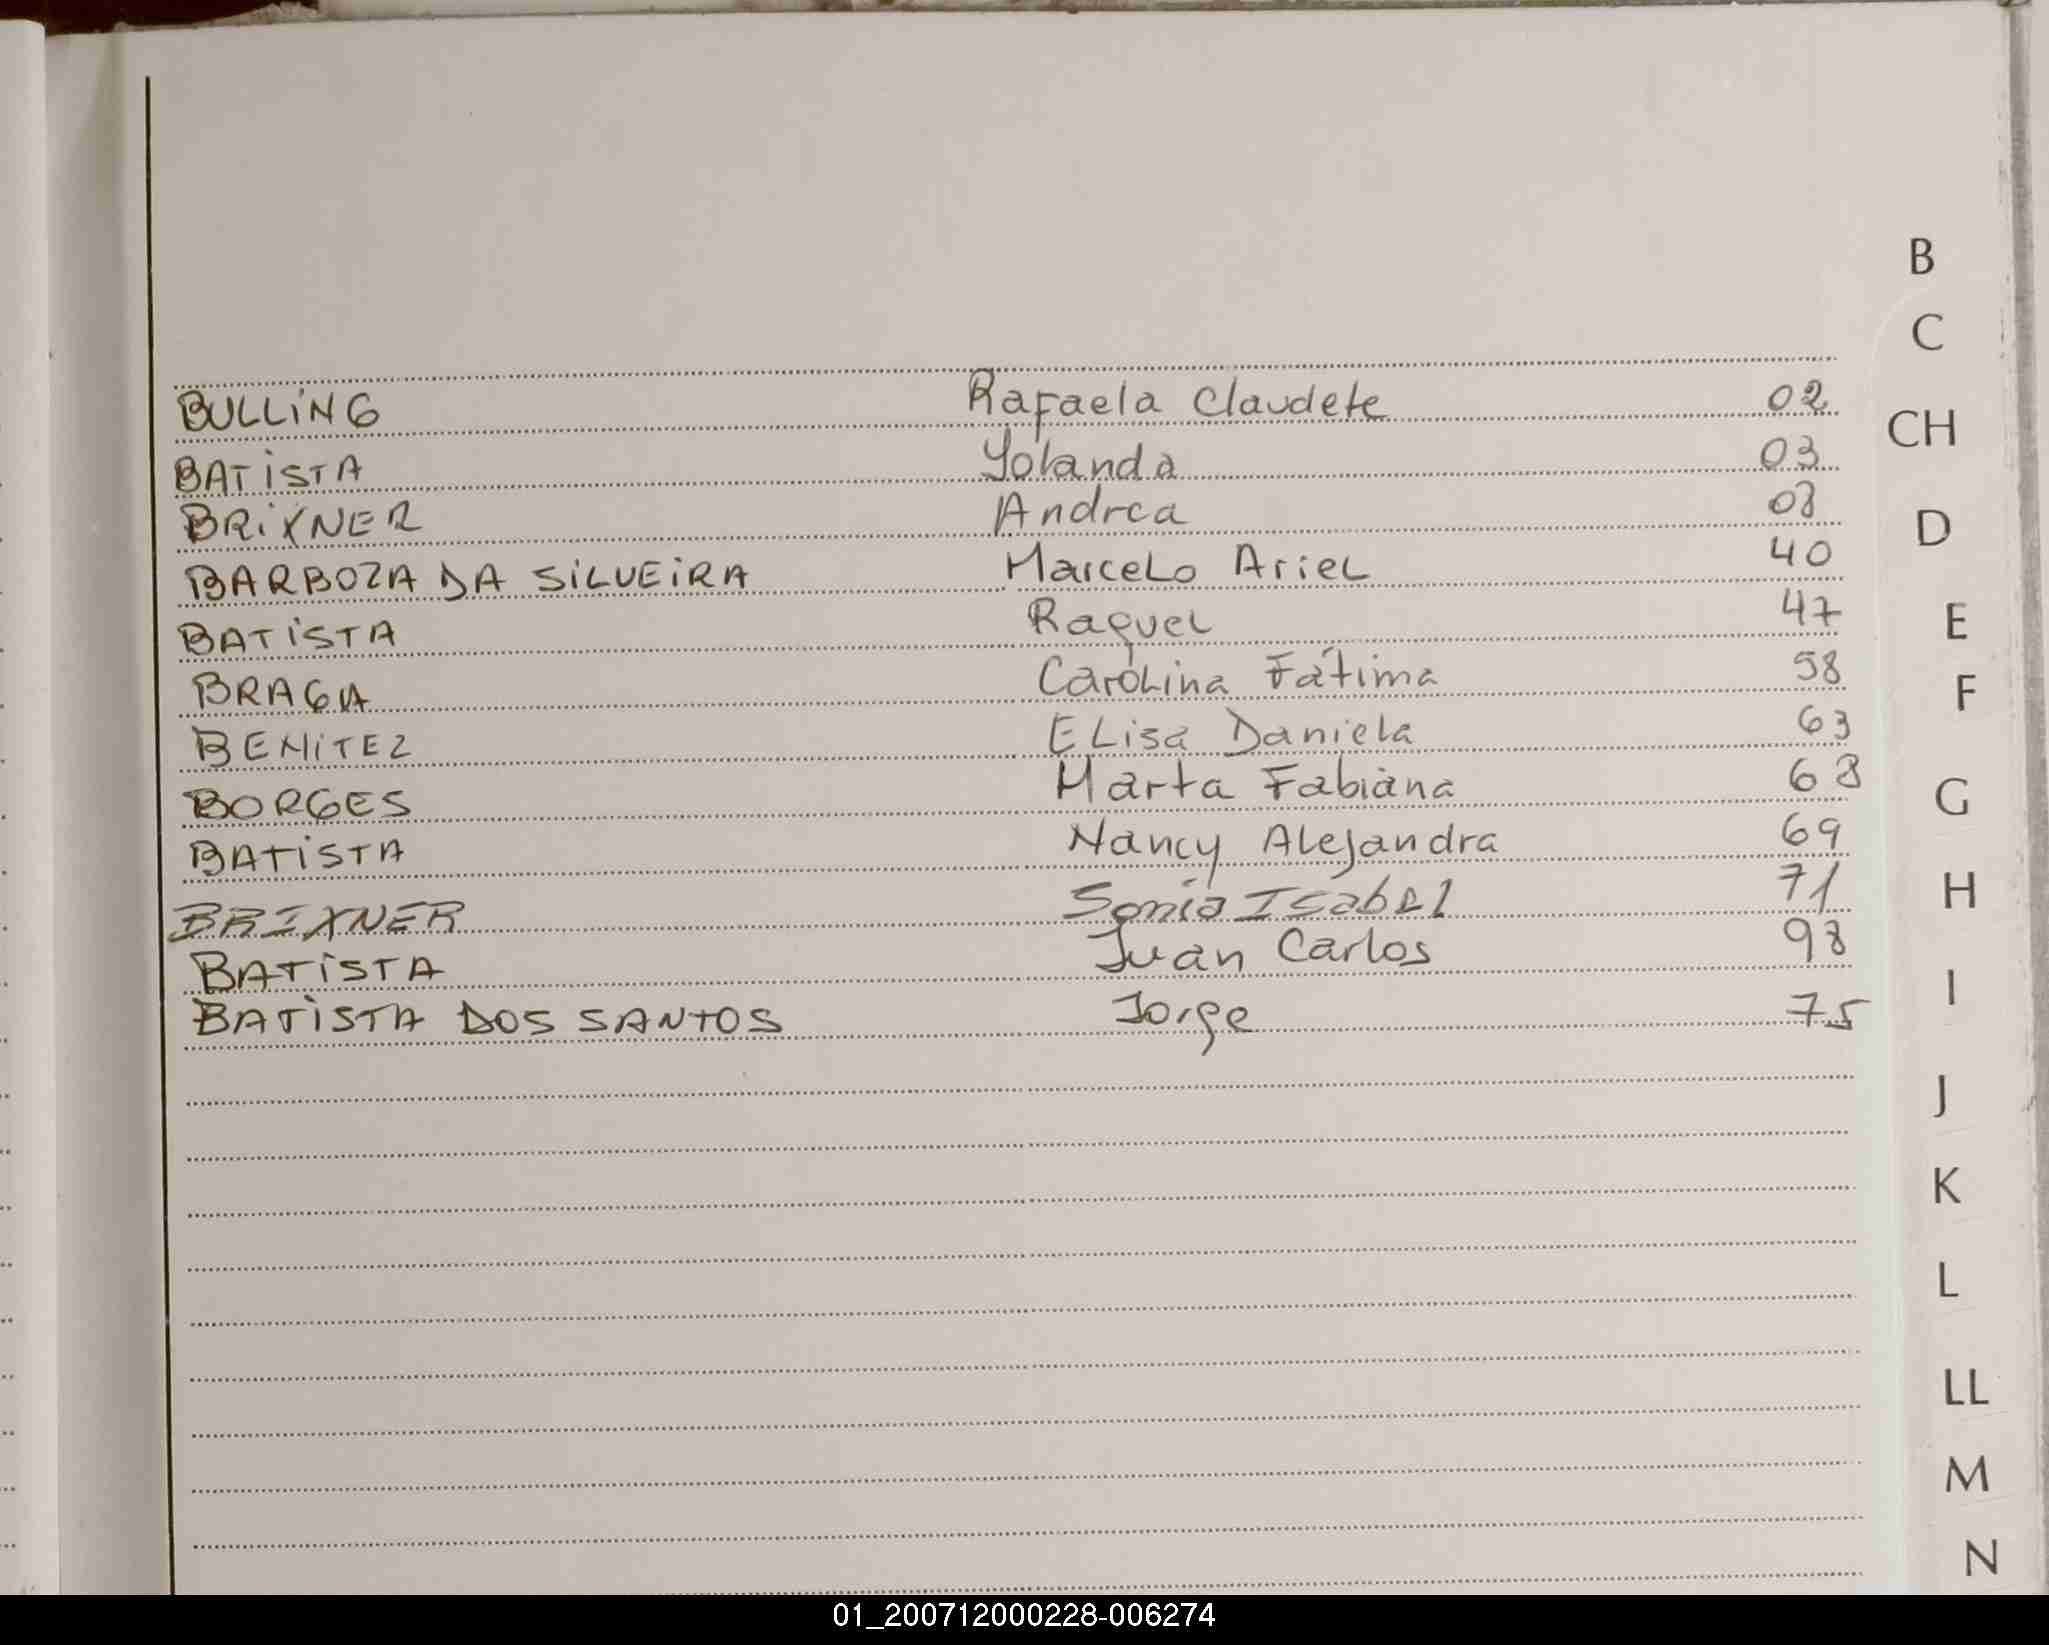 BULLING Rafaela Claudete 02
BATISTA Yolanda 03
BRIXNER Andrea 08
BARBOZA DA SILVEIRA Marcelo Ariel 40
BATISTA Raquel 47
BRAGA Carolina Fátima 58
BENITEZ Elisa Daniela 63
BORGES Marta Fabiana 68
BATISTA Nancy Alejandra 69
BRIXNER Sonia Isabel 71
BATISTA Juan Carlos 98
BATISTA DOS SANTOS Jorge 75
B
C
CH
D
E
F
G
H
I
J
K
L
LL
M
N
01_200712000228-006274